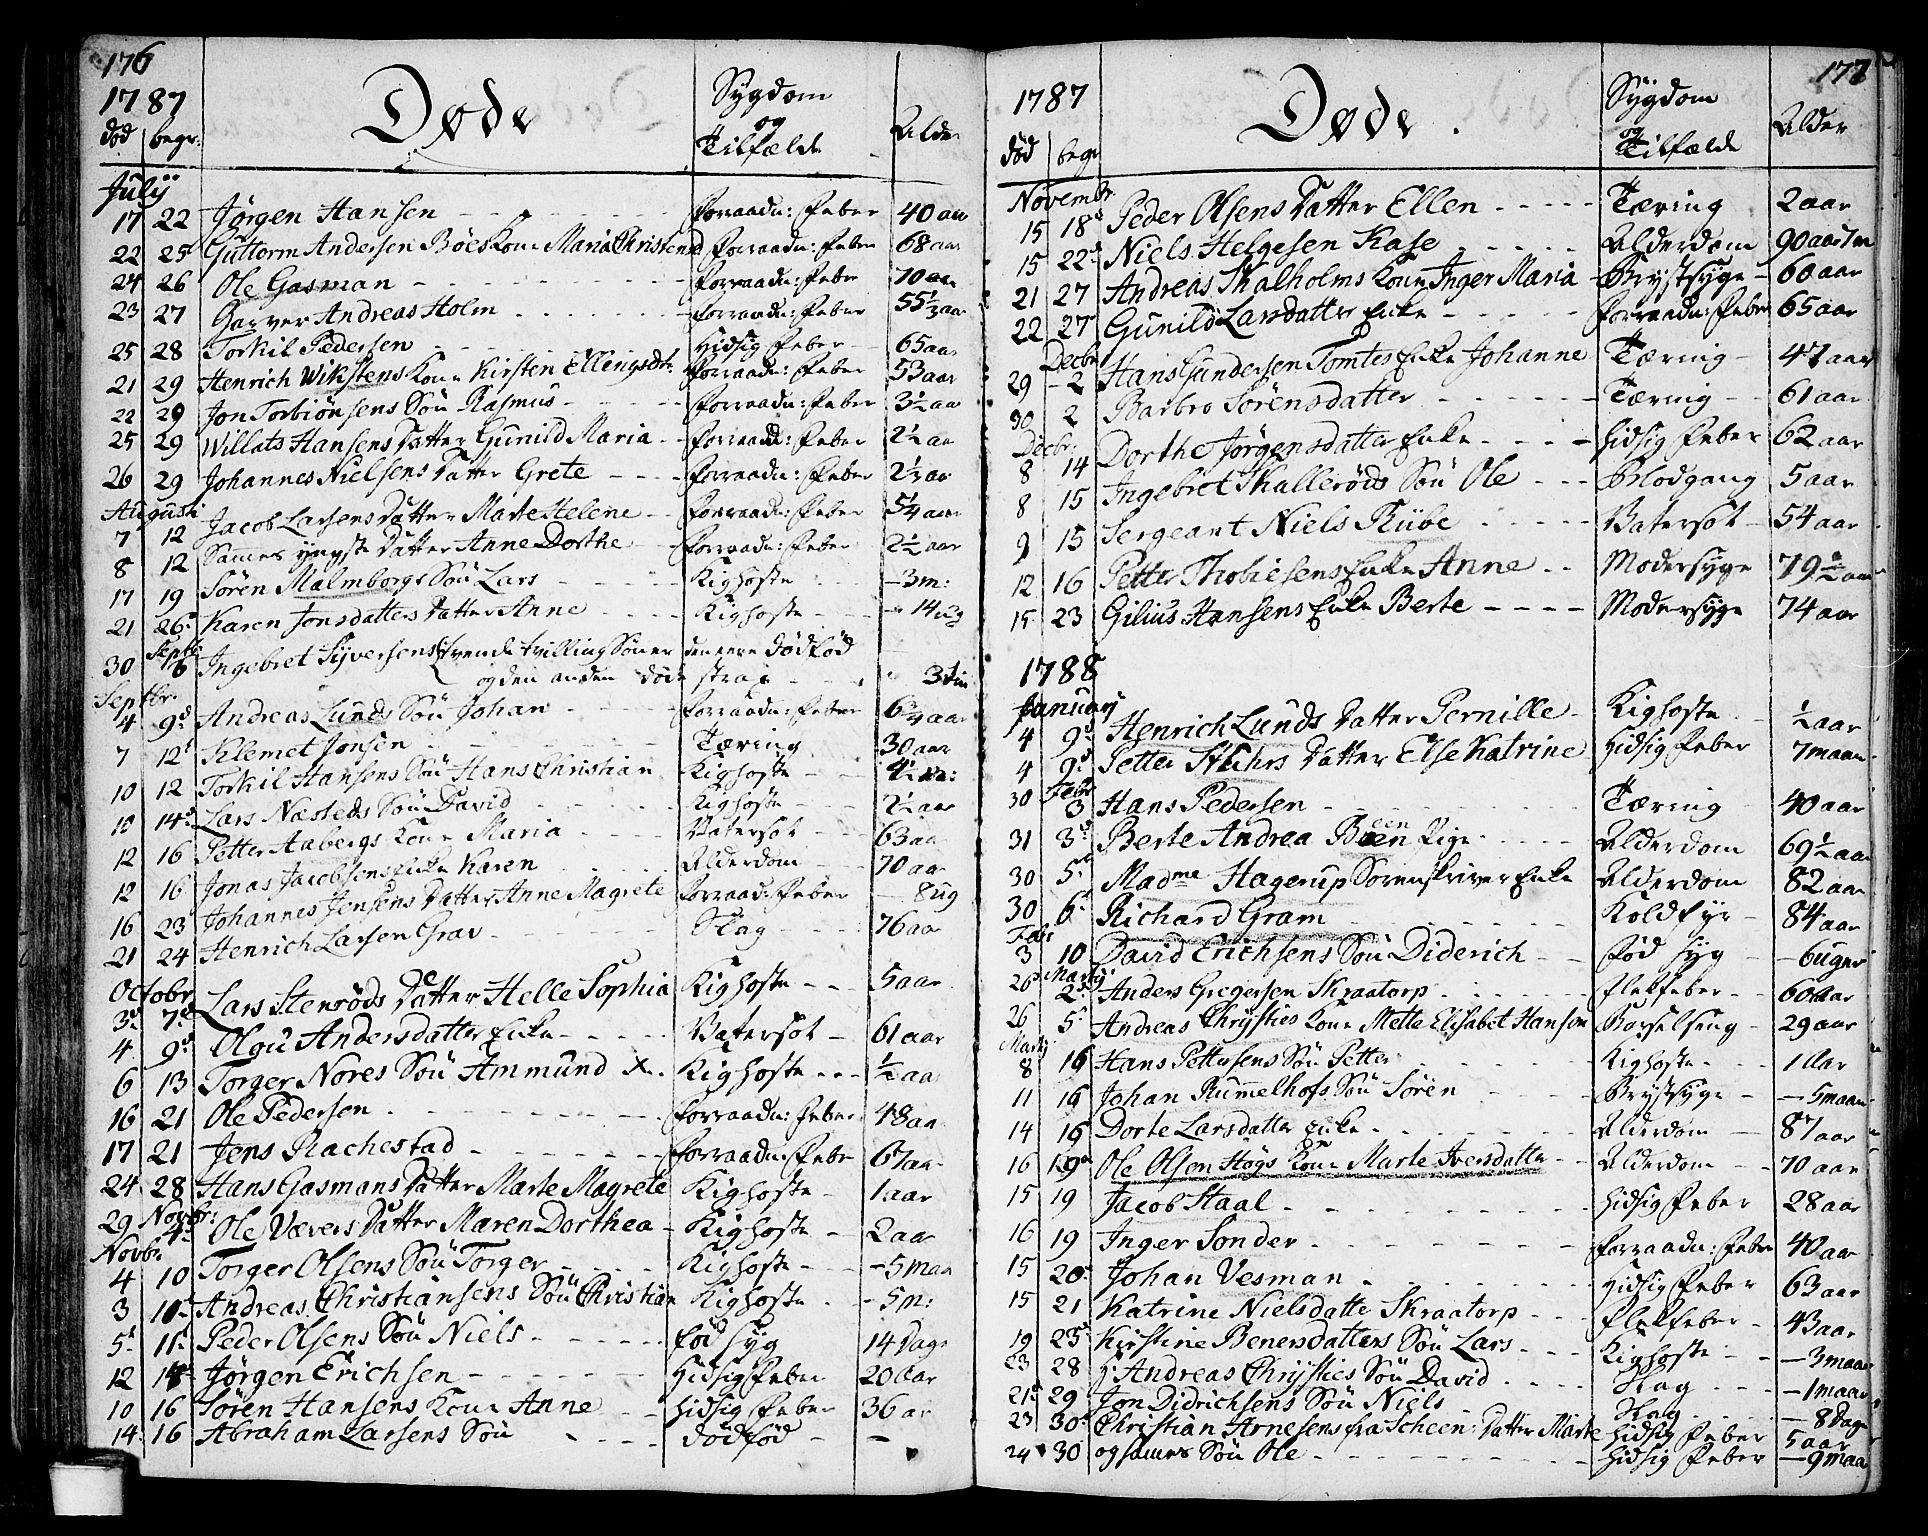 176
1787 Døde Sygdom og Tilfælde Alder
død begr:
Julij
17 22 Jørgen Hansen forraadn: Feber 40 aar
22 25 Guttorm Andersen Böes Kone Maria Christensd forraadn: Feber 68 aar
24 26 Ole Gasman forraadn: Feber 70 aar
23 27 Garver Andreas Holm forraadn: Feber 55½ aar
25 28 Torkil Pedersen Hidsig Feber 65 aar
21 29 Henrich Wikstens Kone Kirsten Ellingsdtr forraadn: Feber 53 aar
22 29 Jon Torbiönsens Sön Rasmus forraadn: Feber 3½ aar
25 29 Willats Hansens Datter Gunild Maria forraadn: Feber 2½ aar
26 29 Johannes Nielsens Datter Grete forraadn: Feber 2½ aar
Augusti
7 12 Jacob Larsens Datter Marte Helene forraadn: Feber 5¼ aar
8 12 Sammes yngste Datter Anne Dorthe forraadn: Feber 2½ aar
17 19 Sören Malmborgs Sön Lars Kighoste 3 m:
21 26 Karen Jonsdatters Datter Anne Kighoste 14
Septb:
30 6 Ingebret Syversens tvende tvilling Sönner den eene dödföd
og den anden döde strax
Septbr.
4 9 Andreas Lunds Sön Johan forraadn: Feber 6¾ aar
7 12 Klemet Jonsen Tæring 30 aar
10 12 Torkil Hansens Sön Hans Christian Kighoste
10 14 Lars Næsteds Sön David Kighoste 2½ aar
12 16 Petter Aabergs Kone Maria Vatersot 63 aar
12 16 Jonas Jacobsens Enke Karen Alderdom 70 aar
16 23 Johannes Jensens Datter Anne Magrete forraadn: Feber 8 ug
21 24 Henrich Larsen Grav Slag 76 aar
Octobr
3 7 Lars Stensröds Datter Helle Sophia Kighoste 5 aar
4 9 Olgu Andersdatter Enke Vatersot 61 aar
6 13 Torger Nores Sön Ammund Kighoste ½ aar
16 21 Ole Pedersen forraadn: Feber 48 aar
17 21 Jens Rachestad forraadn: Feber 67 aar
24 28 Hans Gasmans Datter Marte Magrete Kighoste 1 aar
Novbr:
29 4 Ole Værers Datter Maren Dorthea Kighoste 2 aar
Novbr
4 10 Torger Olsens Sön Torger Kighoste 5 maan
3 10 Andreas Christiansens Sön Christian Kighoste 5 m:
5 11 Peder Olsens Sön Niels föd syg 14 Dage
12 14 Jørgen Erichsen Hidsig Feber 20 aar
10 16 Sören Hansens Kone Anne Hidsig Feber 36 aar
14 16 Abraham Larsens Sön dödföd -
177
1787 Døde. Sygdom og Tilfælde Alder
død begr
Novembr.
15 18 Peder Olsens Datter Ellen Tæring 2 aar
15 22 Niels Helgesen Kase Alderdom 90 aar 7 m
21 27 Andreas Skalholms Kone Inger Maria Brystsyge 60 aar
22 27 Gunild Larsdatter Enke forraadn: Feber 65 aar
Decbr
29 2 Hans Gundersen Tomtes Enke Johanne Tæring 47 aar
30 2 Barbro Sörensdatter Tæring 61 aar
Decbr:
8 14 Dorthe Jörgensdatter Enke Hidsig Feber 62 aar
8 15 Ingebret Skalleröds Sön Ole Blodgang 5 aar
9 15 Sergeant Niels Rübe Vatersot 54 aar
12 16 Petter Thobiesens Enke Anne Modersyge 79½ aar
15 23 Gilius Hansens Enke Berte Modersyge 74 aar
1788
Januarij
4 9 Henrich Lunds Datter Pernille Kighoste ½ aar
4 9 Petter Stuhrs Datter Else Katrine Hidsig Feber 7 maan
Febr
30 3 Hans Pedersen Tæring 40 aar
31 3 Berte Andrea Böen Pige Alderdom 69½ aar
30 5 Madme Hagerup Sorenskriver Enke Alderdom 82 aar
30 6 Richard Gram Koldfyr 84 aar
Febr
3 10 David Erichsens Sön Diderich Föd syg 6 uger
Martij
26 2 Anders Gregersen Skraatorp Flekfeber 60 aar
26 5 Andreas Chrysties Kone Mette Elisabet Hanson Barselseng 29 aar
Martij
8 16 Hans Pettersens Sön Petter Kighoste 1 Aar
11 16 Johan Rummelhofs Sön Sören Brystsyge 5 maan
14 16 Dorte Larsdatter Enke Alderdom 87 aar
16 19 Ole Olsen Högs Kone Marte Iversdatter Alderdom 70 aar
15 19 Jacob Staal Hidsig Feber 28 aar
16 19 Inger Sonder forraadn: Feber 40 aar
15 20 Johan Vesman Hidsig Feber 63 aar
15 21 Katrine Nielsdatter Skraatorp Flekfeber 43 aar
19 23 Kirstine Benersdatters Sön Lars Kighoste 3 maan
23 28 H. Andreas Chrysties Sön David Slag 1 maan
21 29 Jon Didrichsens Sön Niels Slag 8 Dage
23 30 Christian Arnesens fra Scheen Datter Marte Hidsig Feber 5 aar
24 30 og sammes Sön Ole Hidsig Feber 9 maan